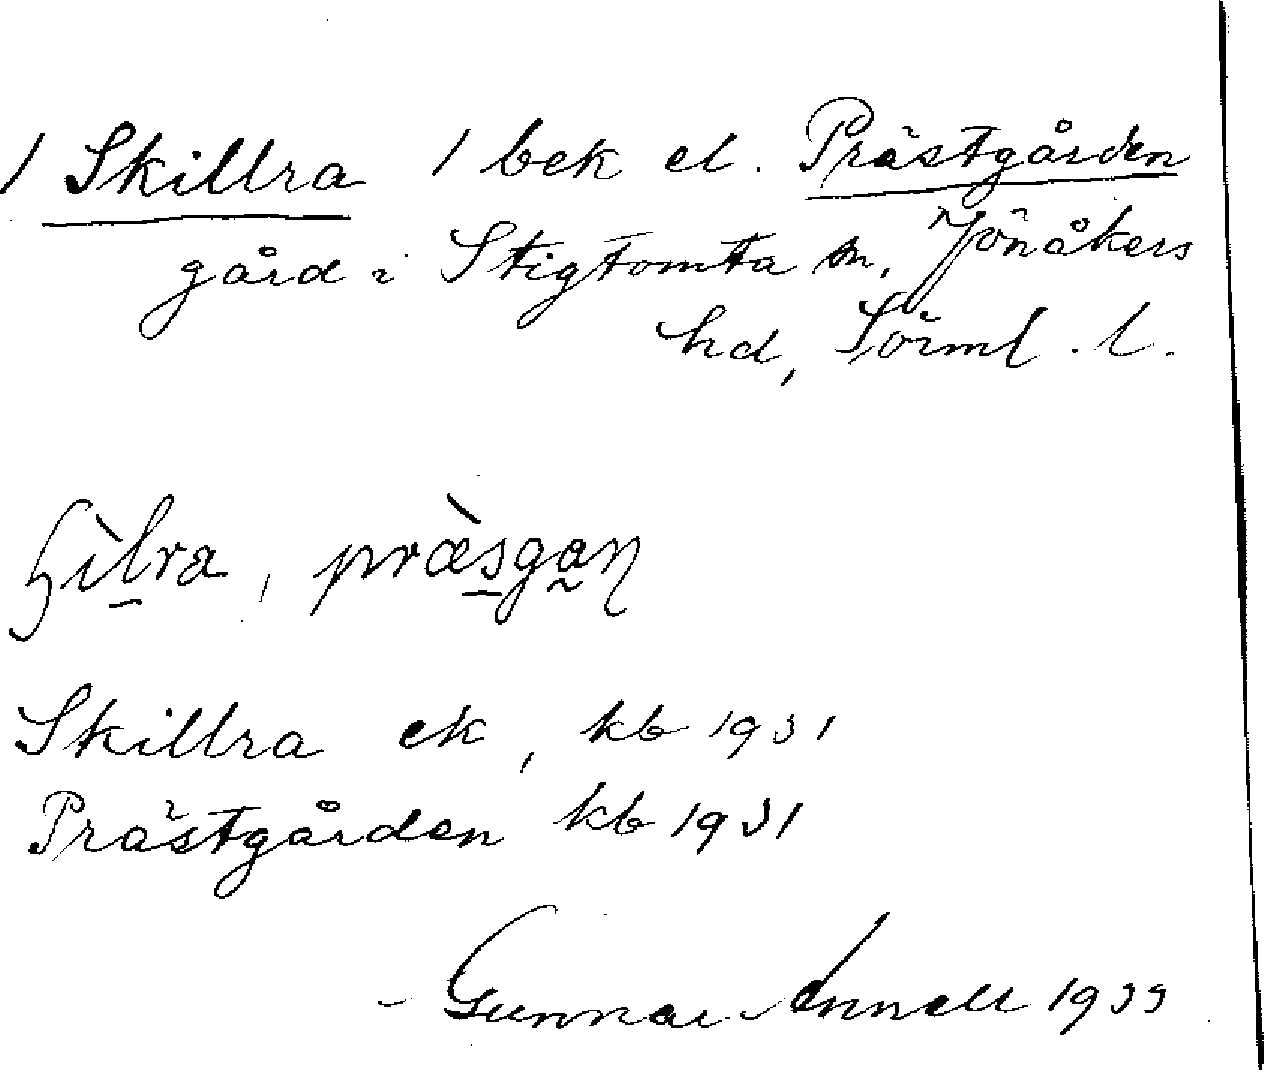 / Skillra / bek el. Prästgården
gård i Stigtomta sn, Jönåkers
hd, Sörml. l.
ꞕìlra, præ̀sgaꞥ
Skillra ek, kb 1931
Prästgården kb 1931
Gunnar Annell 1933